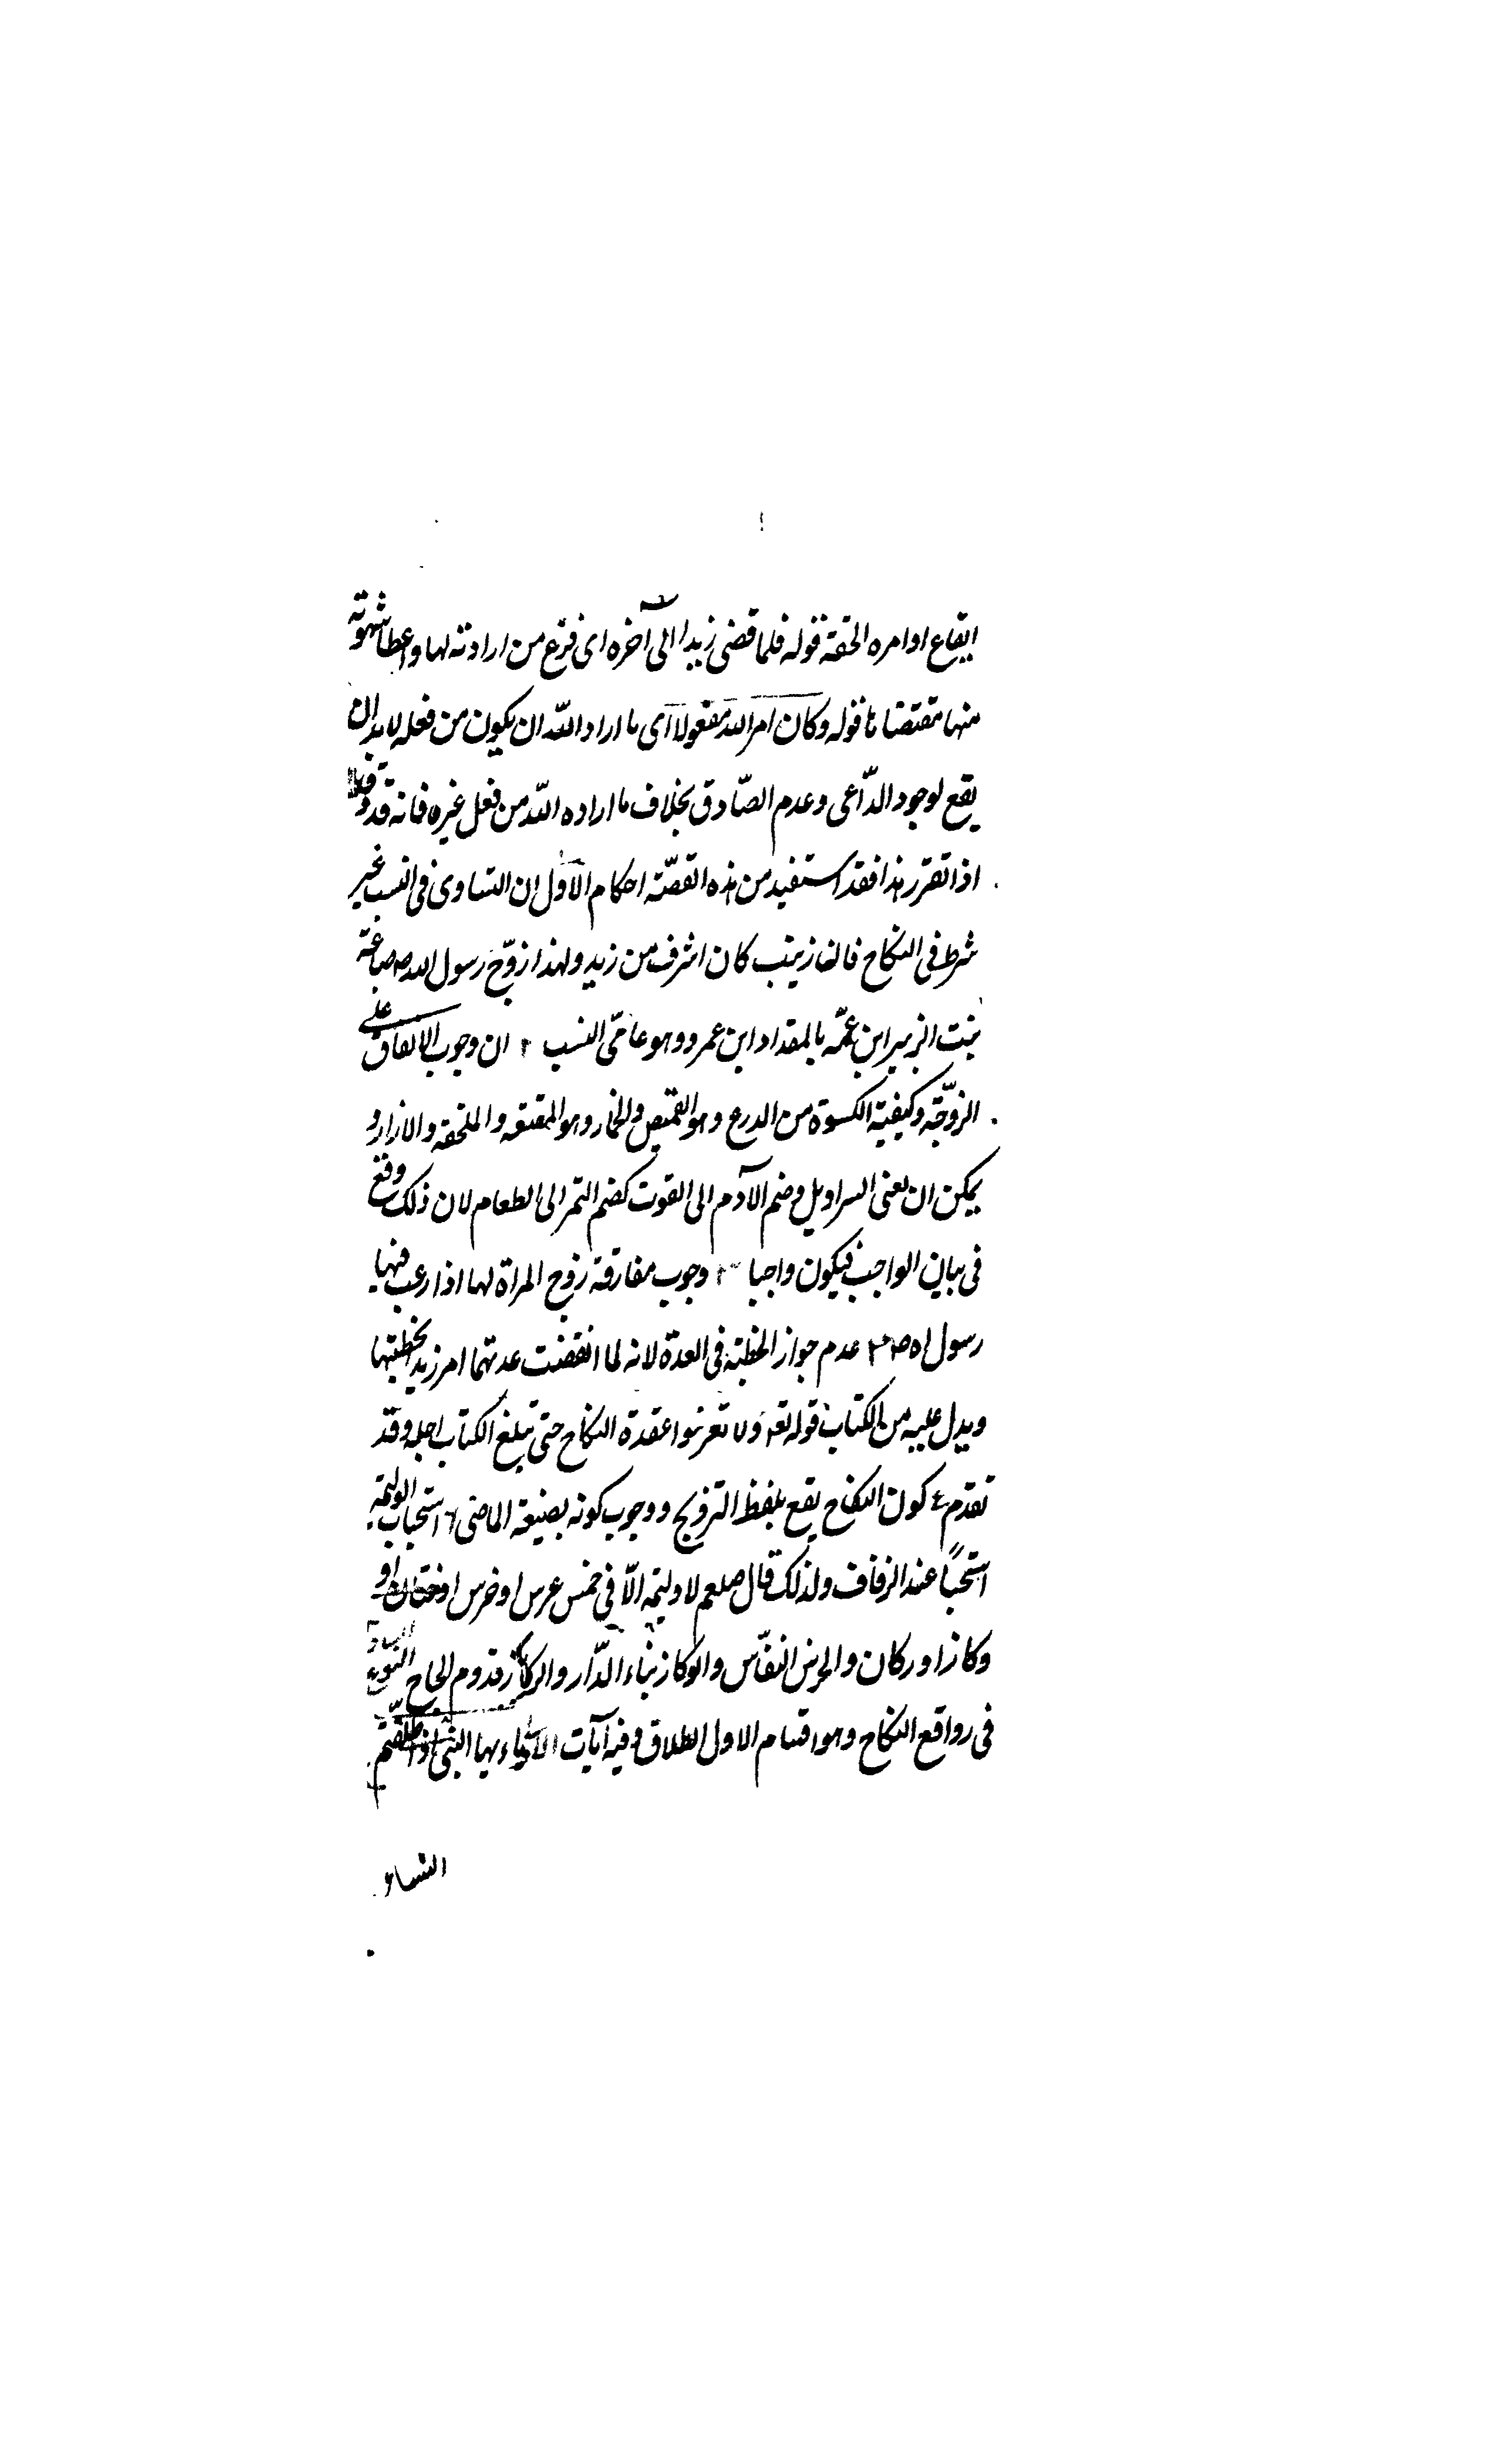 ايقاع اوامره الحقة قوله فلما قضى زيد الى آخره اى فرغ من ارادته لها واعطا شهوته
منها مقتضاها قوله وكان امر الله مفعولا اى ما اراد الله ان يكون من فعله لا بد ان
يقع لوجود الداعى وعدم الصادق بخلاف ما اراده الله من فعل غيره فانه قد
اذا تقرر هذا فقد استفيد من هذه القصة احكام الاول ان التساوى فى النسب غير
شرط فى النكاح فان زينب كان اشرف من زيد ولهذا زوج رسول الله ص ضباعة
بنت الزبير ابن عمه بالمقداد ابن عمرو وهو عامى النسب ٢ ان وجوب الانفاق على
الزوجة وكيفية الكسوة من الدرع وهو القميص والخمار وهو المقنعه والملحفه والازار و
يمكن ان يعنى السراويل وضم الآدم الى القوت كضم التمر الى الطعام لان ذلك وقع
فى بيان الواجب فيكون واجبا ٣ وجوب مفارقة زوج المراة لها اذا رغب فيها
رسول الله ص ٤ عدم جواز الخطبة فى العدة لانه لما انقضت عدتها امر زيد بخطبتها
ويدل عليه من الكتاب قوله تع ولا تعزموا عقدة النكاح حتى تبلغ الكتاب اجله وقد
تقدم ٤ كون النكاح يقع بلفظ التزويج ووجوب كونه بصيغة الماضى ٦ استحباب الوليمة
استحبا عند الزفاف ولذلك قال صلعم لا وليمة الا فى خمس عرس او خرس او ختان او
وكاز او ركان والخرس النفاس والوكاز بناء الدار والركاز قدوم الحاج النوع
فى روافع النكاح وهو اقسام الاول الطلاق وفيه آيات الاولى يا ايها النبى اذا طلقتم
النساء